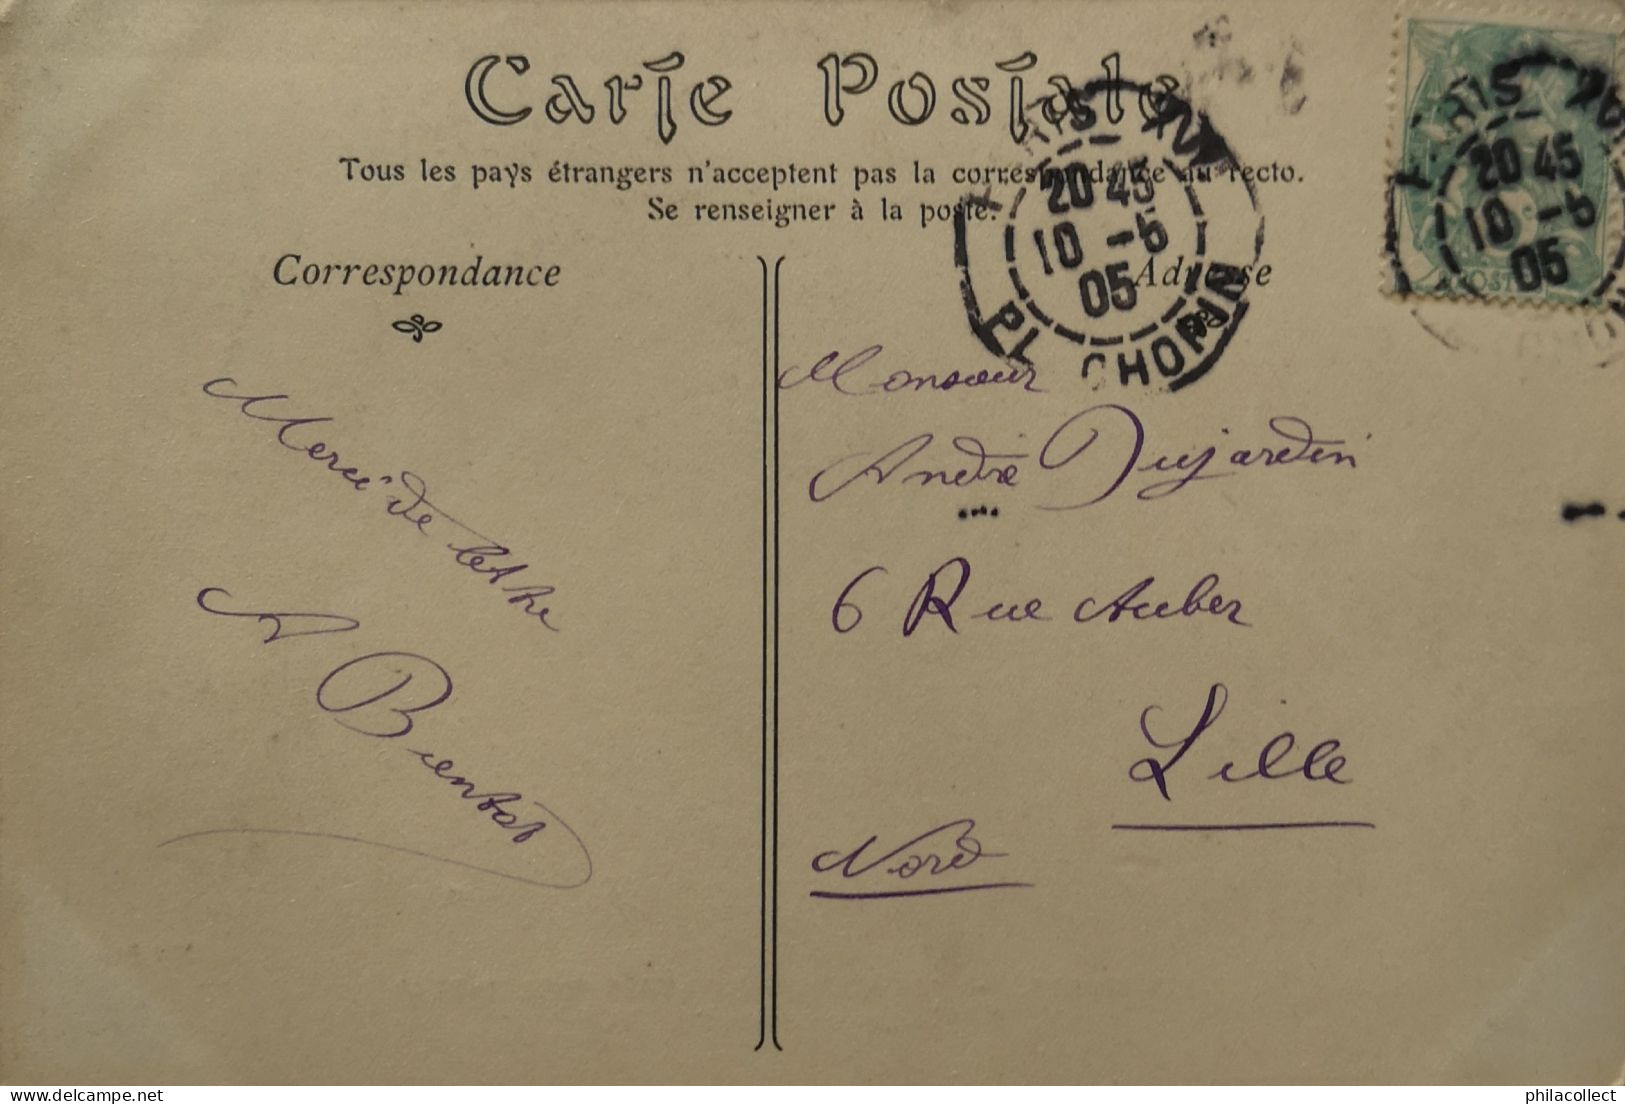 Carte Postale
Tous les pays étrangers n'acceptent pas la correspondance au recto.
Se renseigner à la poste.
Correspondance
Adresse
PARIS XVI
20 45
10 -5
05
PL. CHOPIN
PARIS XVI
20 45
10 -5
05
POSTES
Merci de lettre
A Bientot
Monsieur
André Dujardin
6 Rue Auber
Lille
Nord
www.delcampe.net
philacollect